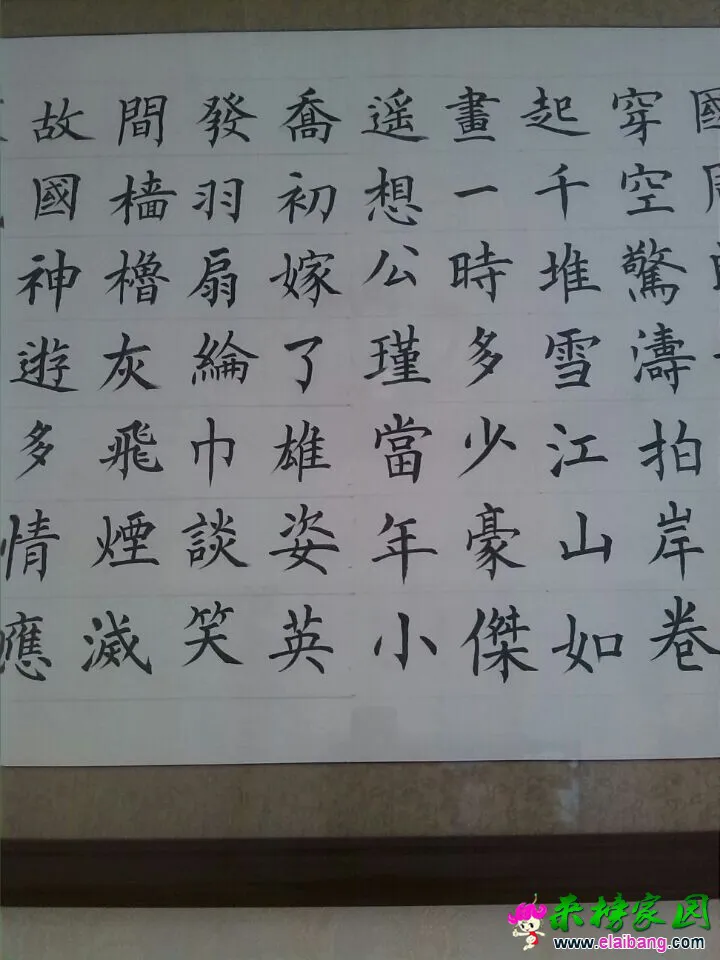 國
穿空驚濤拍岸卷
起千堆雪江山如
畫一時多少豪傑
遥想公瑾當年小
喬初嫁了雄姿英
發羽扇綸巾談笑
間樯櫓灰飛煙滅
故國神遊多情應
来榜家园
www.elaibang.com